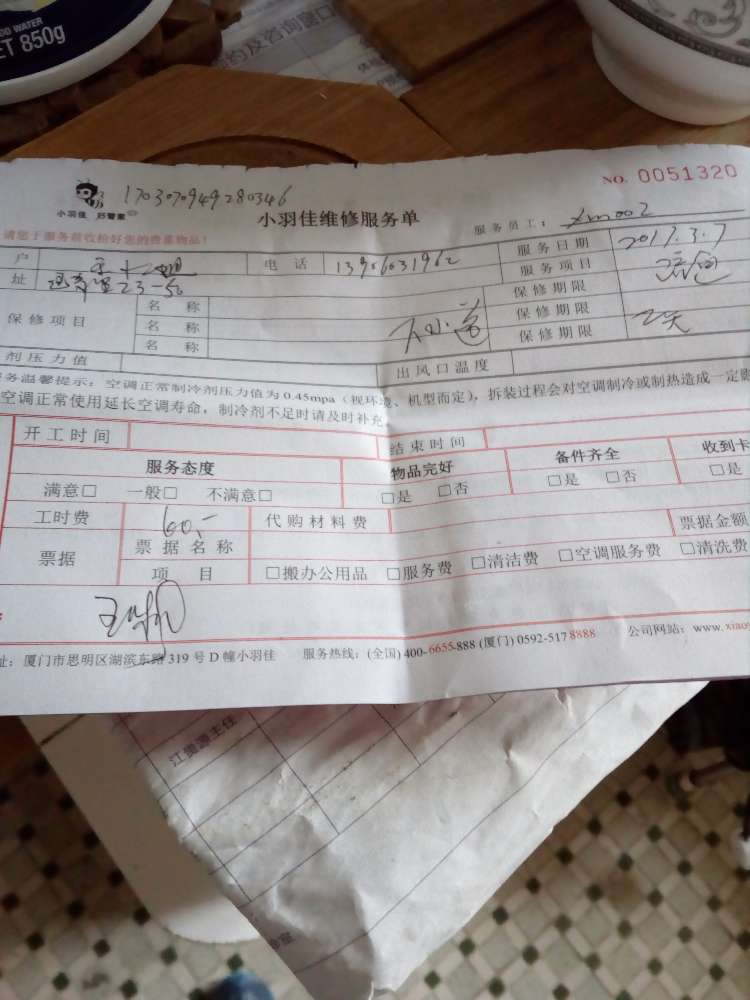 OD WATER
ET 850g
约及咨询窗口
NO. 0051320
1703070949280346
小羽佳 好管家
小羽佳维修服务单
服务员工: xm002
请您于服务前收捡好您的贵重物品!
户
电话
13906031962
服务日期
2017.3.7
址
23-5
服务项目
保修项目
名称
名称
名称
保修期限
保修期限
保修期限
剂压力值
出风口温度
务温馨提示: 空调正常制冷剂压力值为 0.45mpa (视环境、机型而定), 拆装过程会对空调制冷或制热造成一定影
空调正常使用延长空调寿命, 制冷剂不足时请及时补充
开工时间
结束时间
服务态度
物品完好
备件齐全
收到卡
满意□ 一般□ 不满意□
□是 □否
□是 □否
□是
工时费
60.-
代购材料费
票据金额
票据
票据名称
项目
□搬办公用品 □服务费 □清洁费 □空调服务费 □清洗费
址: 厦门市思明区湖滨东路 319 号 D 幢小羽佳 服务热线: (全国) 400-6655-888 (厦门) 0592-5178888 公司网站: www.xiao
江贵源主任